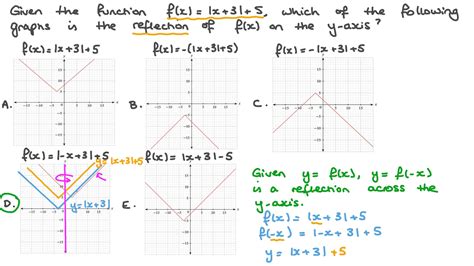 Given the function f(x) = |x+3|+5, which of the following
graphs is the reflection of f(x) on the y-axis?
f(x)=|x+3|+5
f(x)=-(|x+3|+5)
f(x) = -|x+3|+5
A.
B.
C.
f(x)=|-x+3|+5
f(x) = |x+3|-5
y=|x+3|+5
D.
y=|x+3|
E.
Given y= f(x), y= f(-x)
is a reflection across the
y-axis.
f(x) = |x+3|+5
f(-x) = |-x+3|+5
y = |x+3|+5